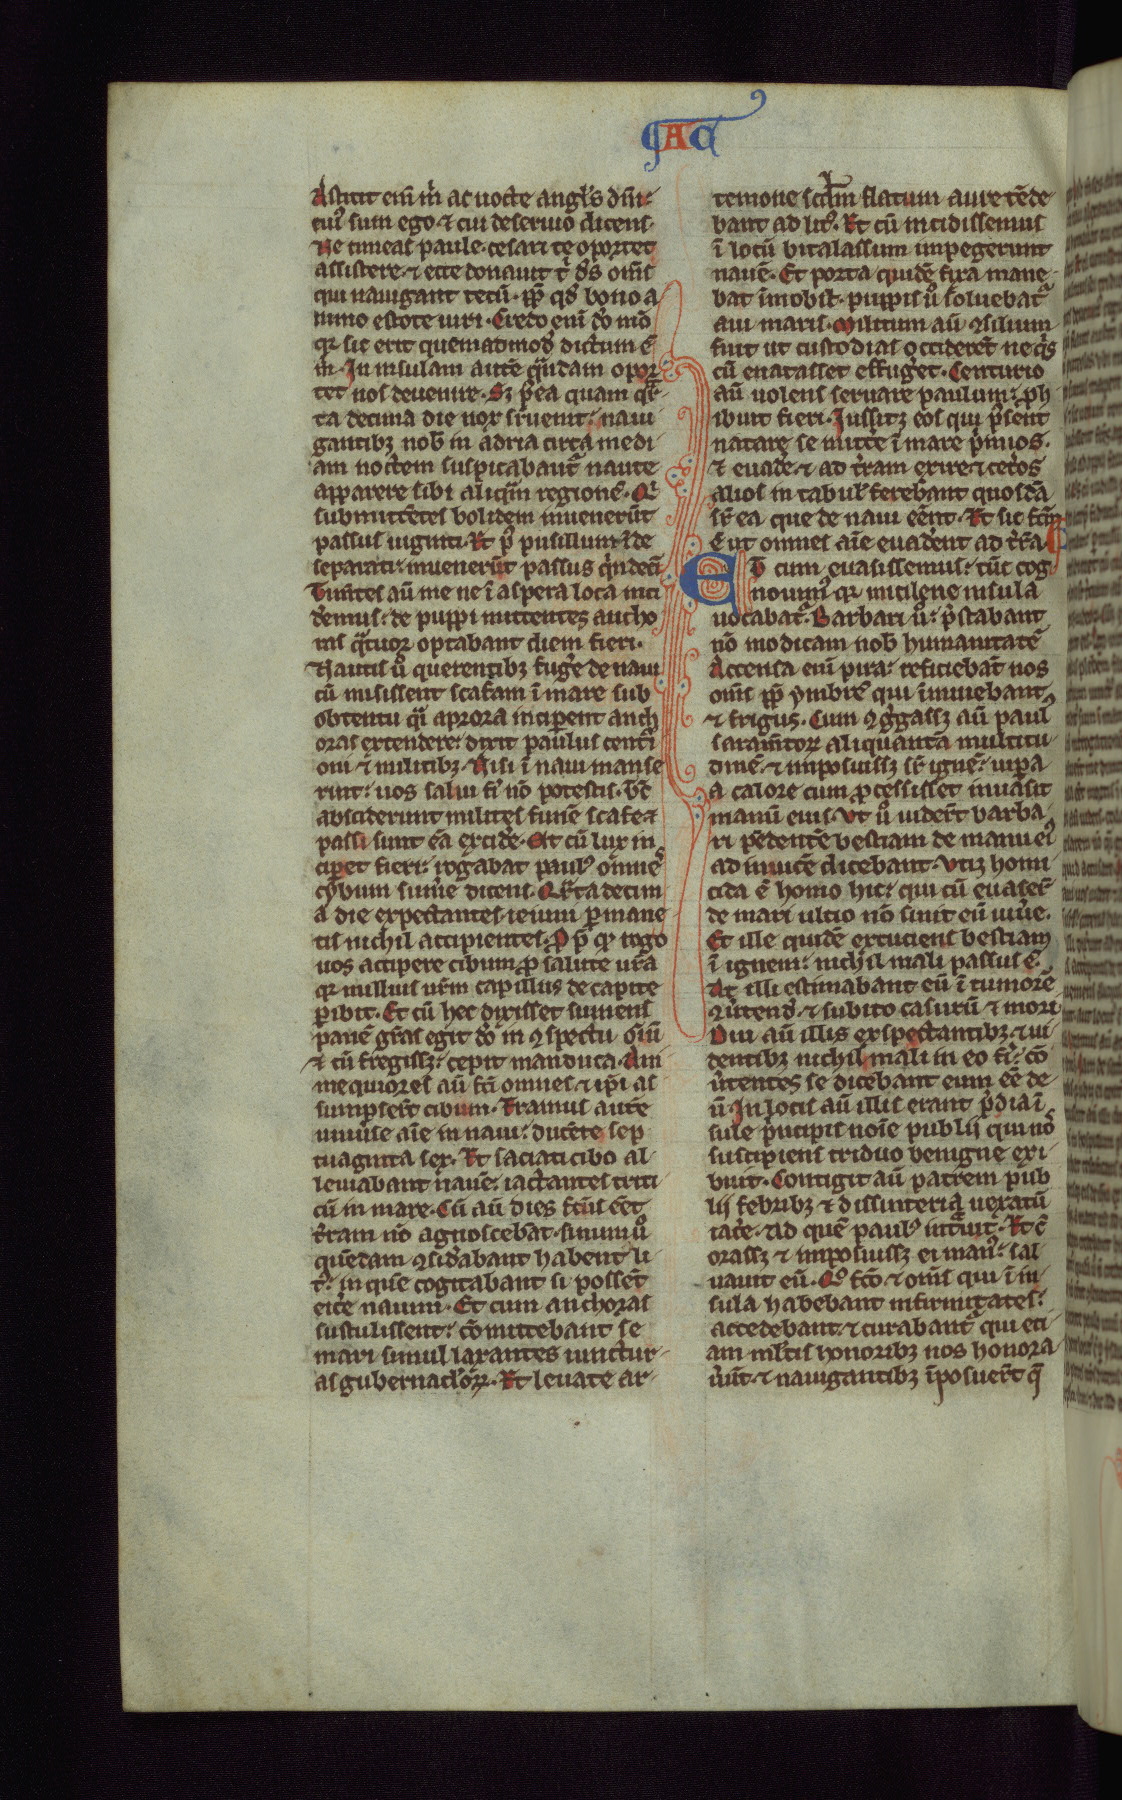 AC
Astitit eni̅ m̓ ac nocte angl̓s dei̅
cui̓ sum ego ⁊ cui deseruio dicens·
Ne timeas paule·cesari te oportet
assistere·⁊ ecce donauit t̓ ds̅ om̅s
qui nauigant tecu̅· pp̅ qd̓ bono a
nimo estote uiri·Credo eni̅ do̅ mo̅
qr sic erit quemadmod̓ dictum e̅
m̓·In insulam aute̅ qu̅dam opor
tet nos deuenire·Sz p̓ea quam qr̓
ta decima die nox sr̓uenit: naui
gantibꝫ nob̓ in adria circa medi
am noctem suspicabant̓ naute
apparere sibi aliqua̅ regione̅·Qi̓
submittentes bolidem inueneru̅t
passus uiginti·Et p̓ pusillum in̅de
separati: inueneru̅t passus qi̓ndeci̅
Time̅tes au̅ me ne i̅ aspera loca inci
d̓emus: de puppi mittentes ancho
ras qa̓tuor optabant diem fieri·
Nautis u̓o querentibꝫ fug̓e de naui
cu̅ misissent scafam i̅ mare sub
obtentu qi̓ a prora incip̓ent anch
oras extendere: dixit paulus centi̓
oni ⁊ militibꝫ·Nisi i̅ naui manse
rint: uos salui fi̓ no̅ potestis·t̅c
absciderunt milites fune̅ scafe ⁊
passi sunt ea̅ excid̓e·Et cu̅ lux in
cip̓et fieri: rogabat paul̓ omnes
cybum sum̓e dicens·Qr̓ta decim
a die expectantes ieiuni p̱mane
tis nichil accipientes·P p̓ qd̓ rogo
uos accipere cibum p̱ salute ur̅a
qr nullius ur̅m capillus de capite
p̱ibit·Et cu̅ hec dixisset sumens
pane̅ gr̅as egit do̅ in ꝯspectu oi̅u̅
⁊ cu̅ fregissꝫ: cepit manduca̓·Ani
mequiores au̅ fc̅i omnes ⁊ ip̅i as
sumpser̅t cibum·Eramus aute̅
uniu̓se ai̅e in naui: ducente sep
tuaginta sex·Et saciati cibo al
leuiabant naue̅: iactantes triti
cu̅ in mare·Cu̅ au̅ dies fc̅us e̅et
t̓ram no̅ agnosceba̅t·sinum u̓o
que̅dam ꝯsid̓abant habent̓ li
t̓: in que̅ cogitabant si posse̅t
eic̓e nauim·Et cum anchoras
sustulissent: co̅mittebant se
mari simul laxantes iunctur
as gubernaclo̓rꝝ·Et leuate ar
temone scd̅m flatum aure te̅de
bant ad lit̓·Et cu̅ incidissemus
i̅ locu̅ bitalassum impegerunt
naue̅·Et prora quide̅ fixa mane
bat i̅mobil̓·puppis u̓o soluebat̓
a ui maris·Militum au̅ ꝯsilium
fuit ut custodias occideret ne qi̓s
cu̅ enatasset effug̓et·Centurio
au̅ uolens seruare paulum: ph̓
ibuit fieri·Iussitꝫ eos qui p̓sent
natare se mitt̓e i̅ mare p̓mos·
⁊ euad̓e·⁊ ad t̓ram exire·⁊ cet̓os
alios in tabul̓ ferebant quosda̅
sr̓ ea que de naui e̅ent·Et sic fc̅m
e̅ ut omnes ai̅e euad̓ent ad t̓ra̅·
Et cum euasissemus: tu̅c cog
nouim̓ qr mitilene insula
uocabat̓·Barbari u̓o: p̓stabant
no̅ modicam nob̓ humanitate̅
Accensa eni̅ pira: reficieba̅t nos
om̅s pp̅ ymbre̅ qui i̅minebant
⁊ frigus·Cum ꝯg̓gassꝫ au̅ paul̓
saram̅torꝝ aliquanta̅ multitu
dine̅·⁊ imposuissꝫ sr̓ igne̅: uipa̓
a calore cum p̱cessisset inuasit
manu̅ eius·Vt u̓o uider̅t barba
ri pe̅dente̅ bestiam de manu ei̓
ad inuice̅ dicebant·Vtiqꝫ homi
cida e̅ homo hic: qui cu̅ euaser̓
de mari ultio no̅ sinit eu̅ uiu̓e·
Et ille quide̅ excuciens bestiam
i̅ ignem: nichil mali passus e̅·
At illi estimabant eu̅ i̅ tumore̅
ꝯu̓tend̓·⁊ subito casuru̅ ⁊ mori
Diu au̅ illis exspectantibꝫ·⁊ ui
dentibꝫ nichil mali in eo fi̓: co̅
u̓tentes se dicebant eum e̅e de
u̅·In locis au̅ illis erant p̓dia i̅
sule p̓ncipis noi̅e publii qui nos
suscipiens triduo benigne exi
buit·Contigit au̅ patrem pub
lii febribꝫ ⁊ dissinteria uexatu̅
iace̓·Ad que̅ paul̓ intu̓it·Et c̅
orassꝫ ⁊ imposuissꝫ ei man̓: sal
uauit eu̅·Qo̓ fc̅o ⁊ om̅s qui i̅ in
sula habebant infirmitates:
accedebant·⁊ curabant̓ qui eci
am ml̓tis honoribꝫ nos honora
u̓u̅t·⁊ nauigantibꝫ i̅posuer̅t q̅